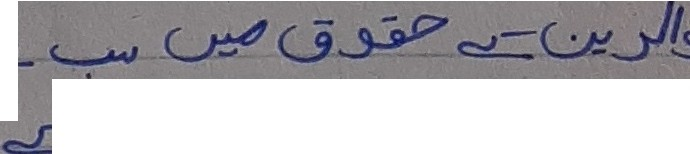 والدین کے حقوق میں سب
سے